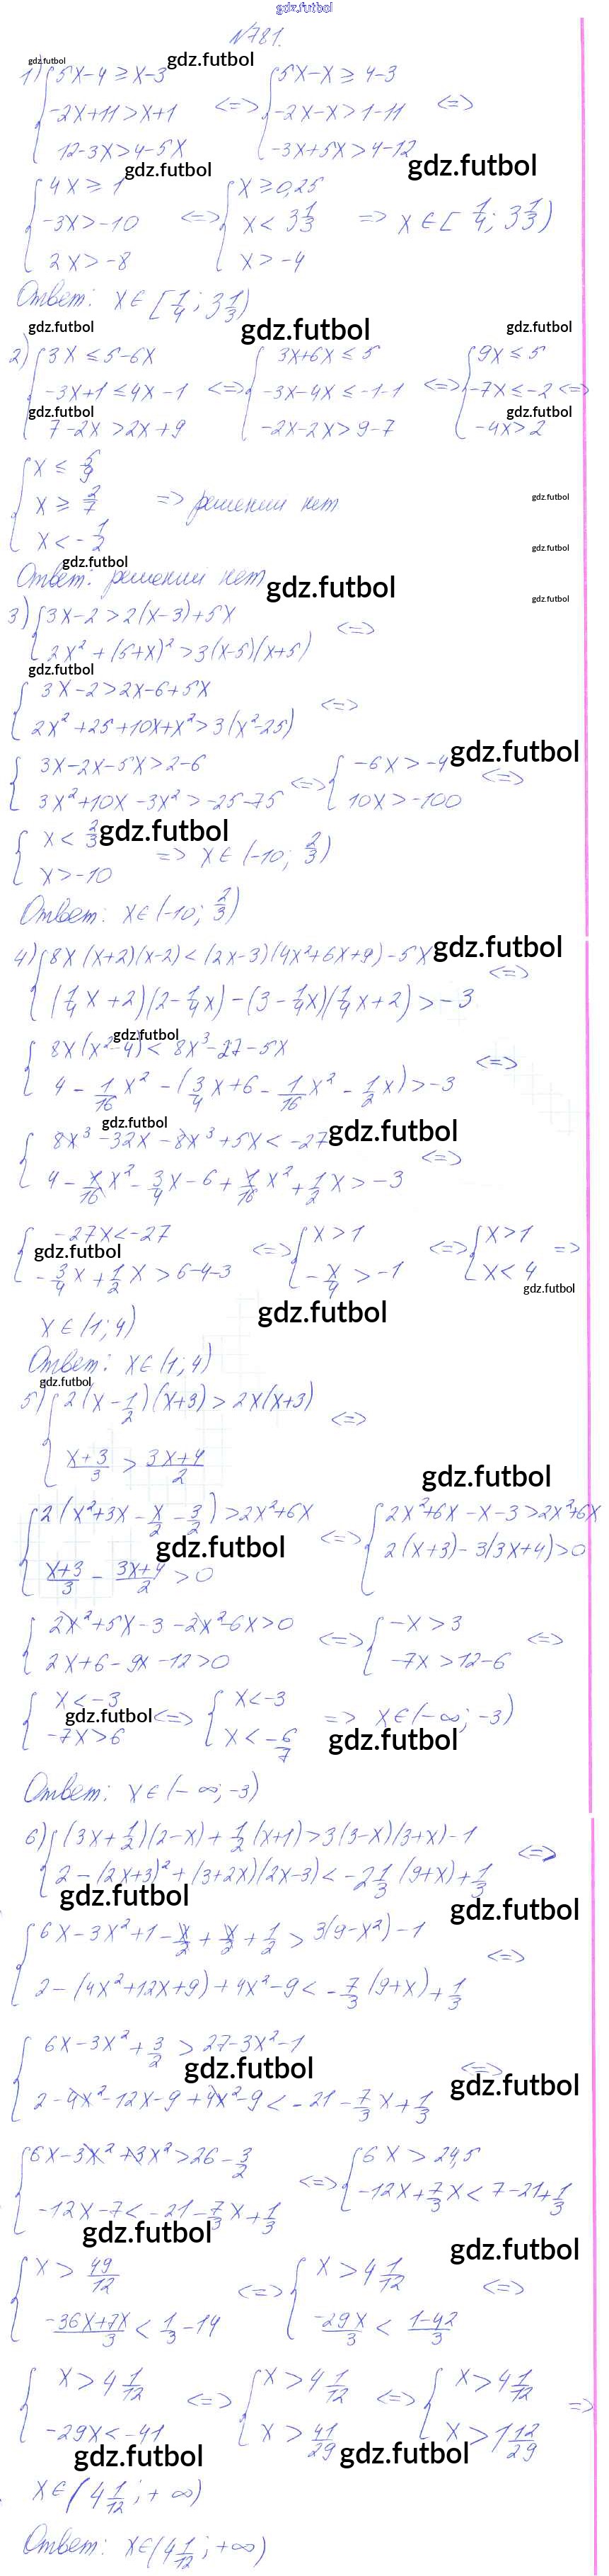 gdz.futbol
№781.
1) {5x-4 ≥ x-3 {5x-x ≥ 4-3
-2x+11 > x+1 <=> -2x-x > 1-11 <=>
12-3x > 4-5x -3x+5x > 4-12
{4x ≥ 1 {x ≥ 0,25
-3x > -10 <=> x < 3 1/3 => x ∈ [1/4; 3 1/3)
2x > -8 x > -4
Ответ: x ∈ [1/4; 3 1/3)
2) {3x ≤ 5-6x {3x+6x ≤ 5 {9x ≤ 5
-3x+1 ≤ 4x-1 <=> -3x-4x ≤ -1-1 <=> -7x ≤ -2 <=>
7-2x > 2x+9 -2x-2x > 9-7 -4x > 2
{x ≤ 5/9
x ≥ 2/7 => решений нет
x < -1/2
Ответ: решений нет
3) {3x-2 > 2(x-3)+5x <=>
2x²+(5+x)² > 3(x-5)(x+5)
{3x-2 > 2x-6+5x <=>
2x²+25+10x+x² > 3(x²-25)
{3x-2x-5x > 2-6 <=> {-6x > -4 <=>
3x²+10x-3x² > -25-75 10x > -100
{x < 2/3 => x ∈ (-10; 2/3)
x > -10
Ответ: x ∈ (-10; 2/3)
4) {8x(x+2)(x-2) < (2x-3)(4x²+6x+9)-5x <=>
(1/4x+2)(2-1/4x)-(3-1/4x)(1/4x+2) > -3
{8x(x²-4) < 8x³-27-5x <=>
4-1/16x²-(3/4x+6-1/16x²-1/2x) > -3
{8x³-32x-8x³+5x < -27 <=>
4-1/16x²-3/4x-6+1/16x²+1/2x > -3
{-27x < -27 <=> {x > 1 <=> {x > 1 =>
-3/4x+1/2x > 6-4-3 -x/4 > -1 x < 4
x ∈ (1; 4)
Ответ: x ∈ (1; 4)
5) {2(x-1/2)(x+3) > 2x(x+3) <=>
x+3/3 > 3x+4/2
{2(x²+3x-x/2-3/2) > 2x²+6x <=> {2x²+6x-x-3 > 2x²+6x
x+3/3 - 3x+4/2 > 0 2(x+3)-3(3x+4) > 0
{2x²+5x-3-2x²-6x > 0 <=> {-x > 3 <=>
2x+6-9x-12 > 0 -7x > 12-6
{x < -3 <=> {x < -3 => x ∈ (-∞; -3)
-7x > 6 x < -6/7
Ответ: x ∈ (-∞; -3)
6) {(3x+1/2)(2-x)+1/2(x+1) > 3(3-x)(3+x)-1 <=>
2-(2x+3)²+(3+2x)(2x-3) < -2 1/3(9+x)+1/3
{6x-3x²+1-x/2+x/2+1/2 > 3(9-x²)-1 <=>
2-(4x²+12x+9)+4x²-9 < -7/3(9+x)+1/3
{6x-3x²+3/2 > 27-3x²-1 <=>
2-4x²-12x-9+4x²-9 < -21-7/3x+1/3
{6x-3x²+3x² > 26-3/2 <=> {6x > 24,5
-12x-7 < -21-7/3x+1/3 -12x+7/3x < 7-21+1/3
{x > 49/12 <=> {x > 4 1/12 <=>
-36x+7x/3 < 1/3-14 -29x/3 < 1-42/3
{x > 4 1/12 <=> {x > 4 1/12 <=> {x > 4 1/12 =>
-29x < -41 x > 41/29 x > 1 12/29
x ∈ (4 1/12; +∞)
Ответ: x ∈ (4 1/12; +∞)